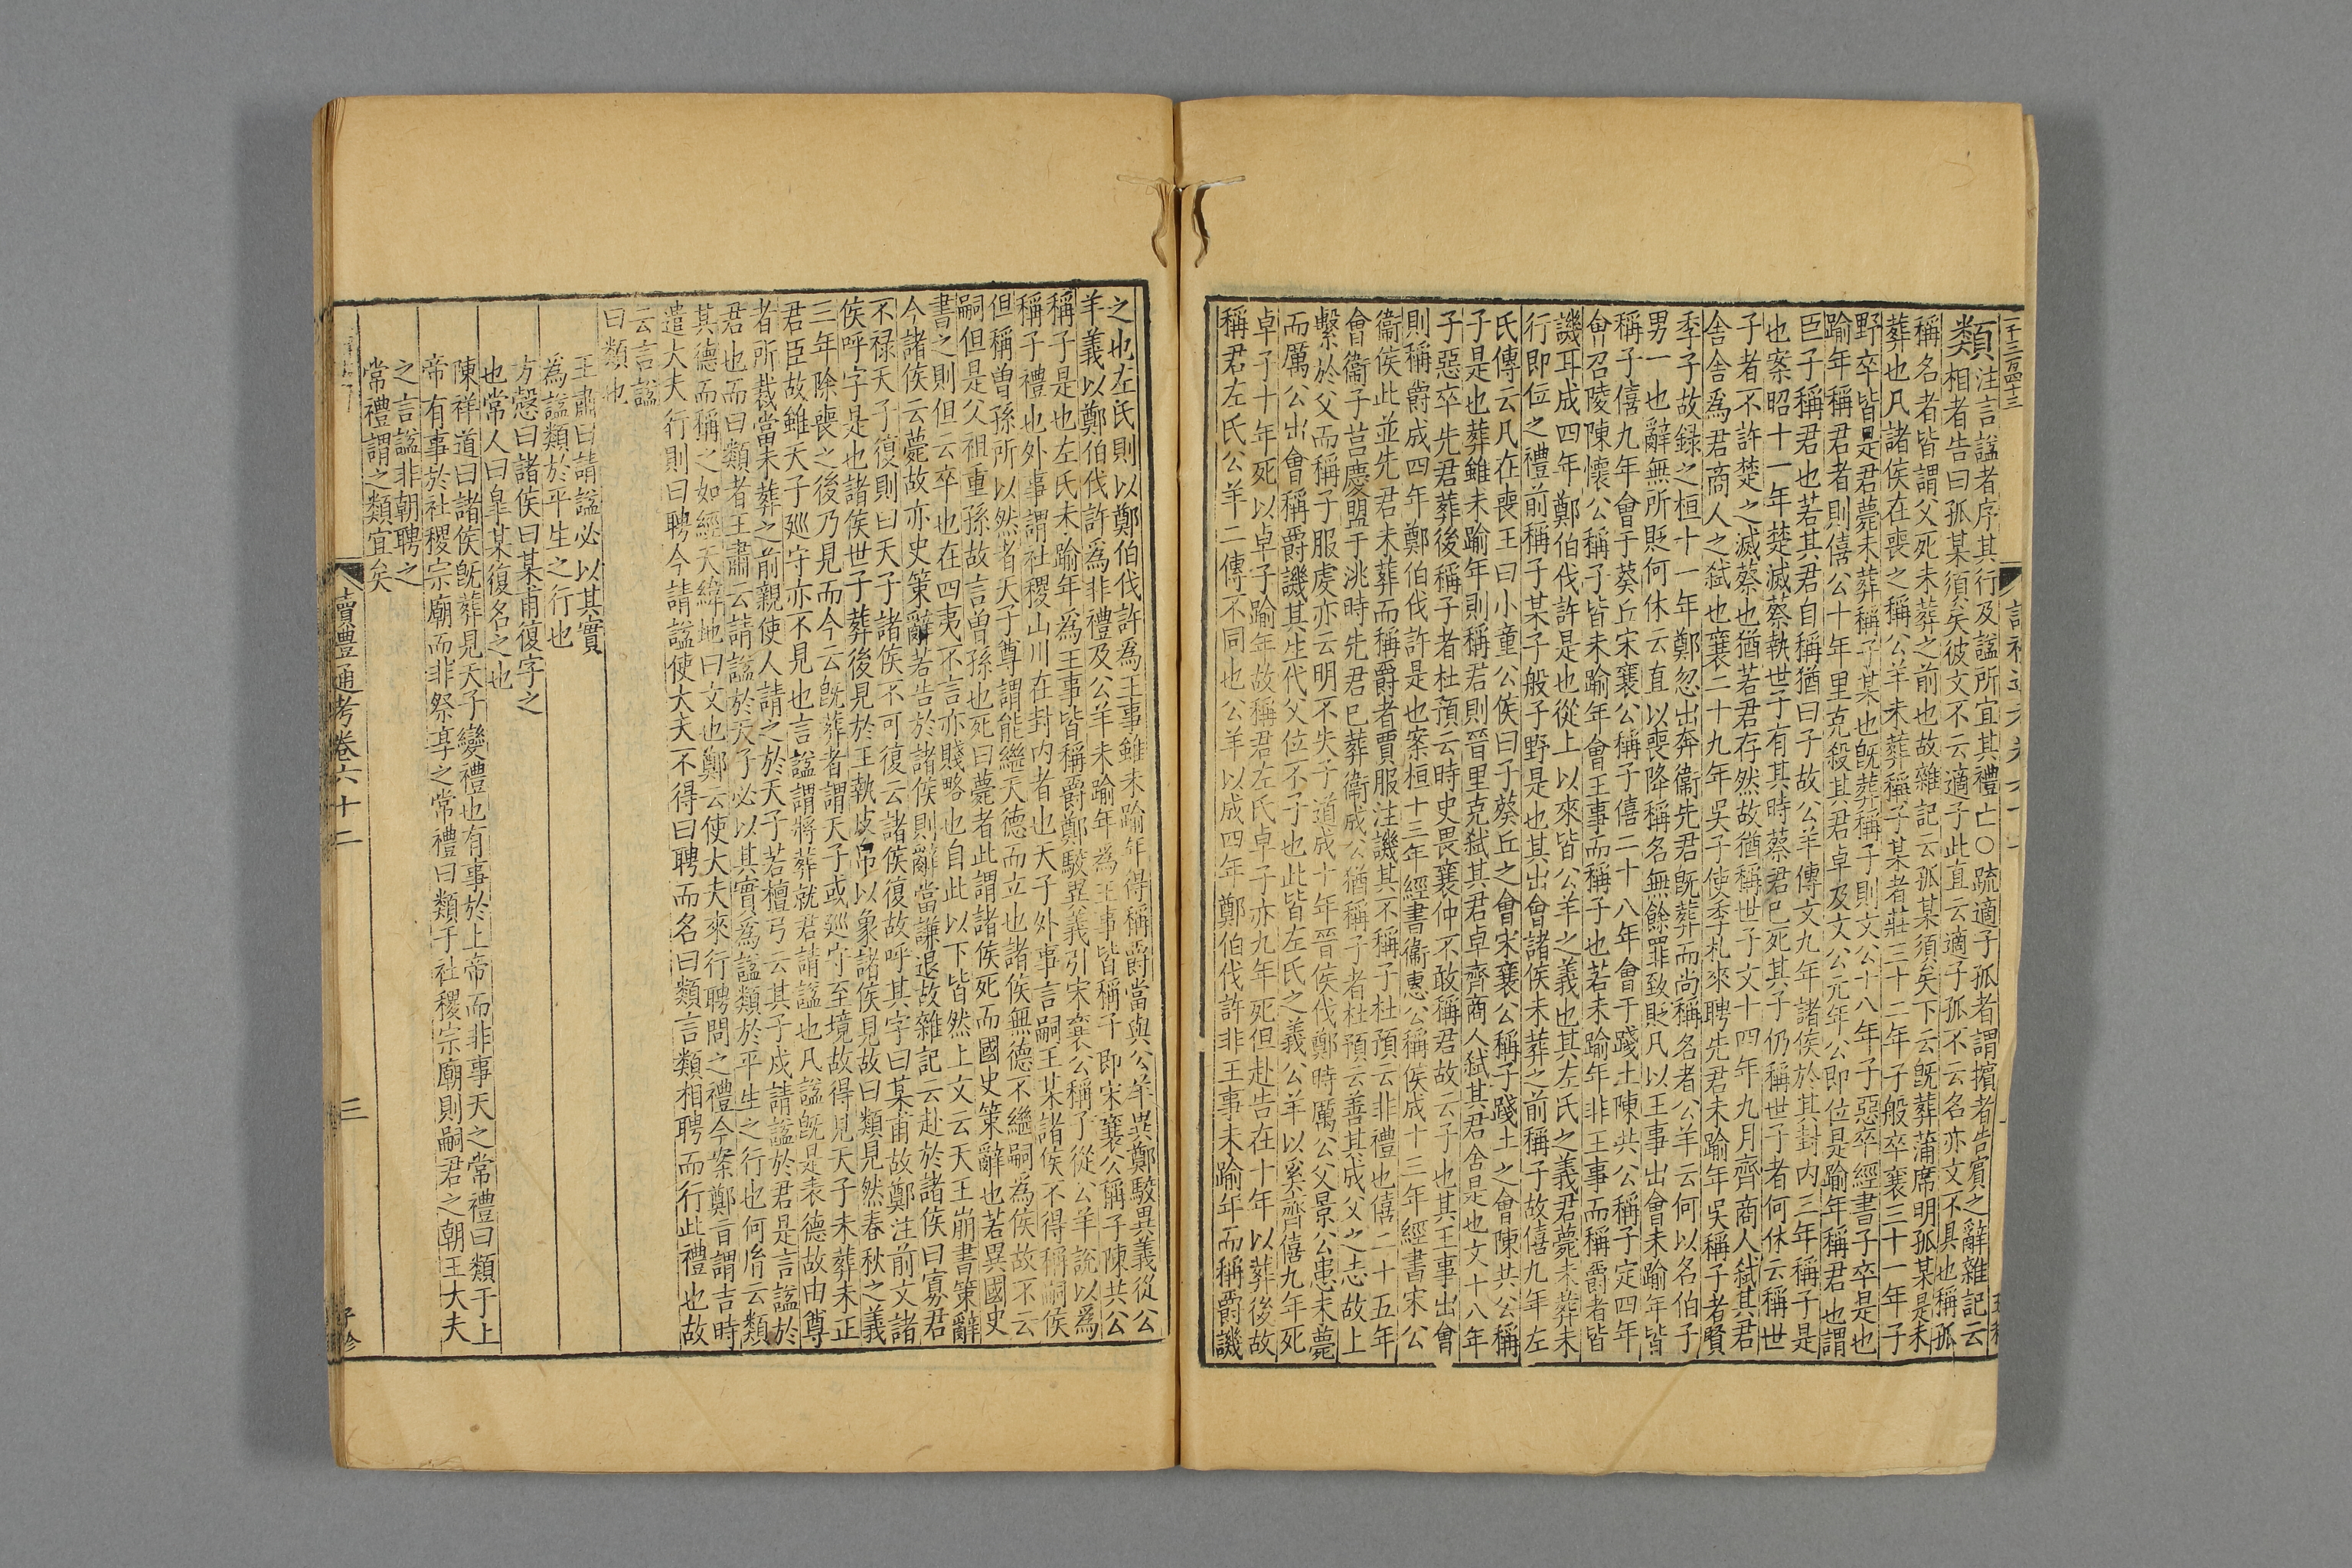 一千三百四十三
類
注言諡者序其行及諡所宜其禮亡○疏適子孤者謂擯者告賓之辭雜記云
相者告曰孤某須矣彼文不云適子此直云適子孤不云名亦文不具也稱孤
稱名者皆謂父死未葬之前也故雜記云孤某須矣下云旣葬蒲席明孤某是未
葬也凡諸侯在喪之稱公羊未葬稱子某者莊三十二年子般卒襄三十一年子
野卒皆是君薨未葬稱子某也旣葬稱子則文公十八年子惡卒經書子卒是也
踰年稱君者則僖公十年里克殺其君卓及文公元年公即位是踰年稱君也謂
臣子稱君也若其君自稱猶曰子故公羊傳文九年諸侯於其封内三年稱子是
也案昭十一年楚滅蔡執世子有其時蔡君已死其子仍稱世子者何休云稱世
子者不許楚之滅蔡也猶若君存然故猶稱世子文十四年九月齊商人弑其君
舍舍爲君商人之弑也襄二十九年吳子使季札來聘先君未踰年吳稱子者賢
季子故録之桓十一年鄭忽出奔衞先君旣葬而尚稱名者公羊云何以名伯子
男一也辭無所貶何休云直以喪降稱名無餘罪致貶凡以王事出會未踰年皆
稱子僖九年會于葵丘宋襄公稱子僖二十八年會于踐土陳共公稱子定四年
會召陵陳懷公稱子皆未踰年會王事而稱子也若未踰年非王事而稱爵者皆
譏耳成四年鄭伯伐許是也從上以來皆公羊之義也其左氏之義君薨未葬未
行即位之禮前稱子某子般子野是也其出會諸侯未葬之前稱子故僖九年左
氏傳云凡在喪王曰小童公侯曰子葵丘之會宋襄公稱子踐土之會陳共公稱
子是也葬雖未踰年則稱君則晉里克弑其君卓齊商人弑其君舍是也文十八年
子惡卒先君葬後稱子者杜預云時史畏襄仲不敢稱君故云子也其王事出會
則稱爵成四年鄭伯伐許是也案桓十三年經書衞惠公稱侯成十三年經書宋公
衞侯此並先君未葬而稱爵者賈服注譏其不稱子杜預云非禮也僖二十五年
會衞子莒慶盟于洮時先君已葬衞成公猶稱子者杜預云善其成父之志故上
繫於父而稱子服虔亦云明不失子道成十年晉侯伐鄭時厲公父景公患未薨
而厲公出會稱爵譏其生代父位不子也此皆左氏之義公羊以奚齊僖九年死
卓子十年死以卓子踰年故稱君左氏卓子亦九年死但赴告在十年以葬後故
稱君左氏公羊二傳不同也公羊以成四年鄭伯伐許非王事未踰年而稱爵譏
之也左氏則以鄭伯伐許為王事雖未踰年得稱爵當與公羊異鄭駮異義從公
羊義以鄭伯伐許為非禮及公羊未踰年為王事皆稱子即宋襄公稱子陳共公
稱子是也左氏未踰年為王事皆稱爵鄭駮異義引宋襄公稱子從公羊説以爲
稱子禮也外事謂社稷山川在封内者也天子外事言嗣王某諸侯不得稱嗣侯
但稱曾孫所以然者天子尊謂能繼天德而立也諸侯無德不繼嗣為侯故不云
嗣但是父祖重孫故言曾孫也死曰薨者此謂諸侯死而國史策辭也若異國史
書之則但云卒也在四夷不言亦賤略也自此以下皆然上文云天王崩書策辭
今諸侯云薨故亦史策辭若告於諸侯則辭當謙退故雜記云赴於諸侯曰寡君
不禄天子復則曰天子諸侯不可復云諸侯復故呼其字曰某甫故鄭注前文諸
侯呼字是也諸侯世子葬後見於王執皮帛以象諸侯見故曰類見然春秋之義
三年除喪之後乃見而今云旣葬者謂天子或廵守至境故得見天子未葬未正
君臣故雖天子廵守亦不見也言諡謂將葬就君請諡也凡諡旣是表德故由尊
者所裁當未葬之前親使人請之於天子若檀弓云其子戍請諡於君是言諡於
君也而曰類者王肅云請諡於天子必以其實為諡類於平生之行也何胤云類
其德而稱之如經天緯地曰文也鄭云使大夫來行聘問之禮今案鄭音謂吉時
遣大夫行則曰聘今請諡使大夫不得曰聘而名曰類言類相聘而行此禮也故
云言諡
曰類也
王肅曰請諡必以其實
為諡類於平生之行也
方慤曰諸侯曰某甫復字之
也常人曰臯某復名之也
陳祥道曰諸侯旣葬見天子變禮也有事於上帝而非事天之常禮曰類于上
帝有事於社稷宗廟而非祭享之常禮曰類于社稷宗廟則嗣君之朝王大夫
之言諡非朝聘之
常禮謂之類宜矣
讀禮通考卷六十二
三